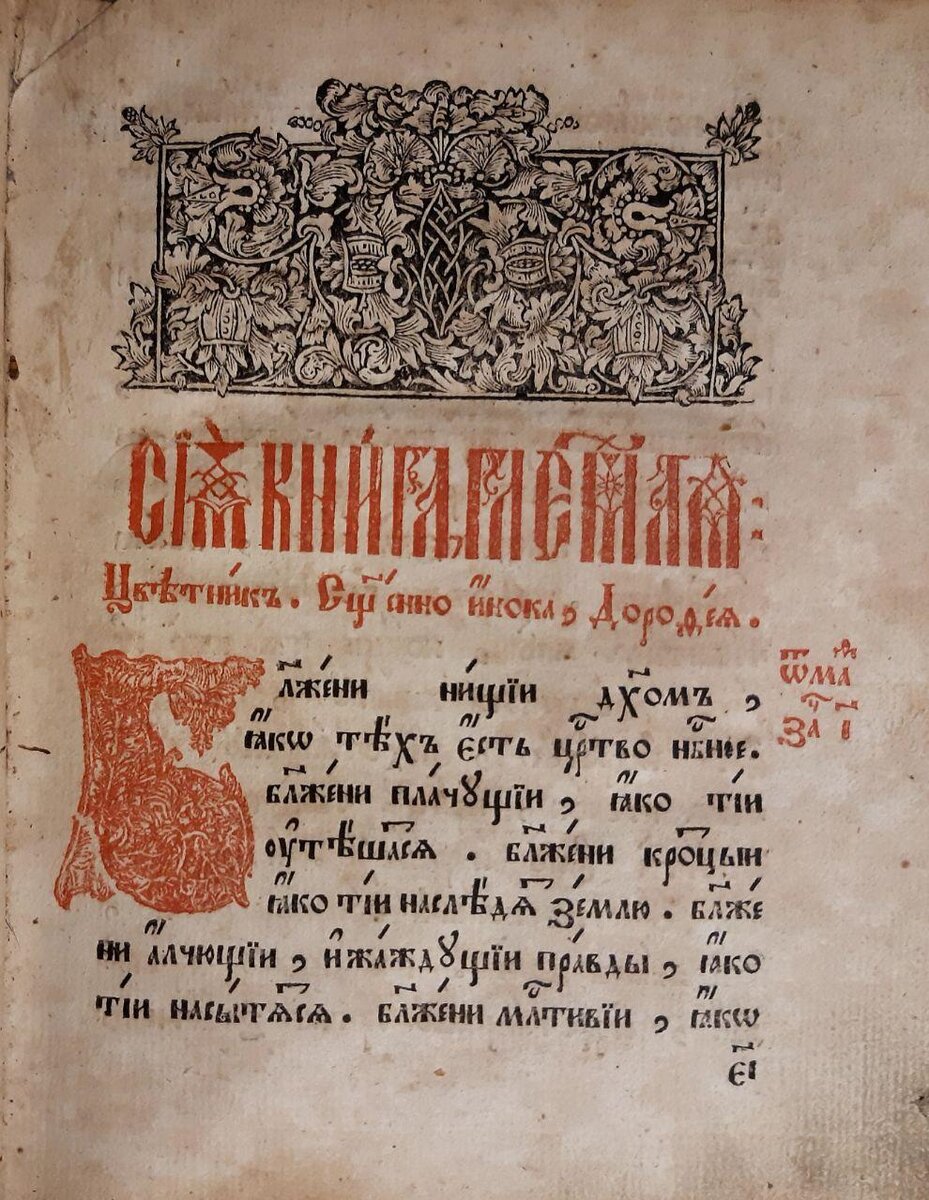 СІѦ̀ КНИ́ГА, ГЛЕ҃МАѦ :
Цвѣтни́къ. Сщ҃е́нно и҆́нока, Дороѳе́ѧ.
Бл҃же́ни ни́щїи дх҃омъ,
ꙗ҆́кѡ тѣ́хъ є҆́сть црⷭ҇тво нбⷭ҇ное.
бл҃же́ни пла́чꙋщїи, ꙗ҆́ко ті́и
оу҆тѣ́шатсѧ. бл҃же́ни кро́тцыи
ꙗ҆́ко ті́и наслѣ́дѧт зе́млю. бл҃же́
ни а҆́лчющїи, и҆ жа́ждꙋщїи пра́вды, ꙗ҆́ко
ті́и насы́тѧтсѧ. бл҃же́ни млⷭ҇тивїи, ꙗ҆́кѡ
ѿ маⷴ
за҃ і҃